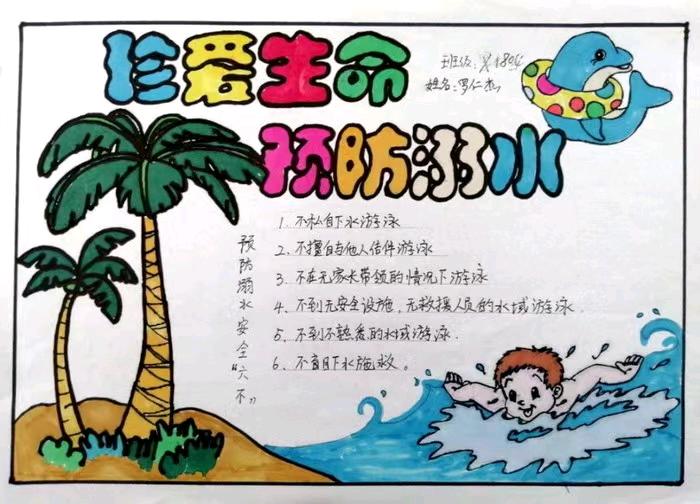 珍爱生命
班级:
姓名:罗仁杰
预防溺水
预防溺水安全"六不"
1、不私自下水游泳
2、不擅自与他人结伴游泳
3、不在无家长带领的情况下游泳
4、不到无安全设施、无救援人员的水域游泳.
5、不到不熟悉的水域游泳.
6、不盲目下水施救。